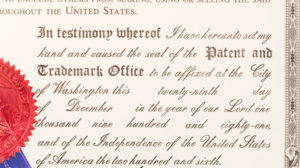 TO EXCLUDE OTHERS FROM MAKING, USING OR SELLING THE SAID
ROUGHOUT THE UNITED STATES.
In testimony whereof I have hereunto set my
hand and caused the seal of the Patent and
Trademark Office to be affixed at the City
of Washington this twenty-ninth day
of December in the year of our Lord one
thousand nine hundred and eighty-one,
and of the Independence of the United States
of America the two hundred and sixth.